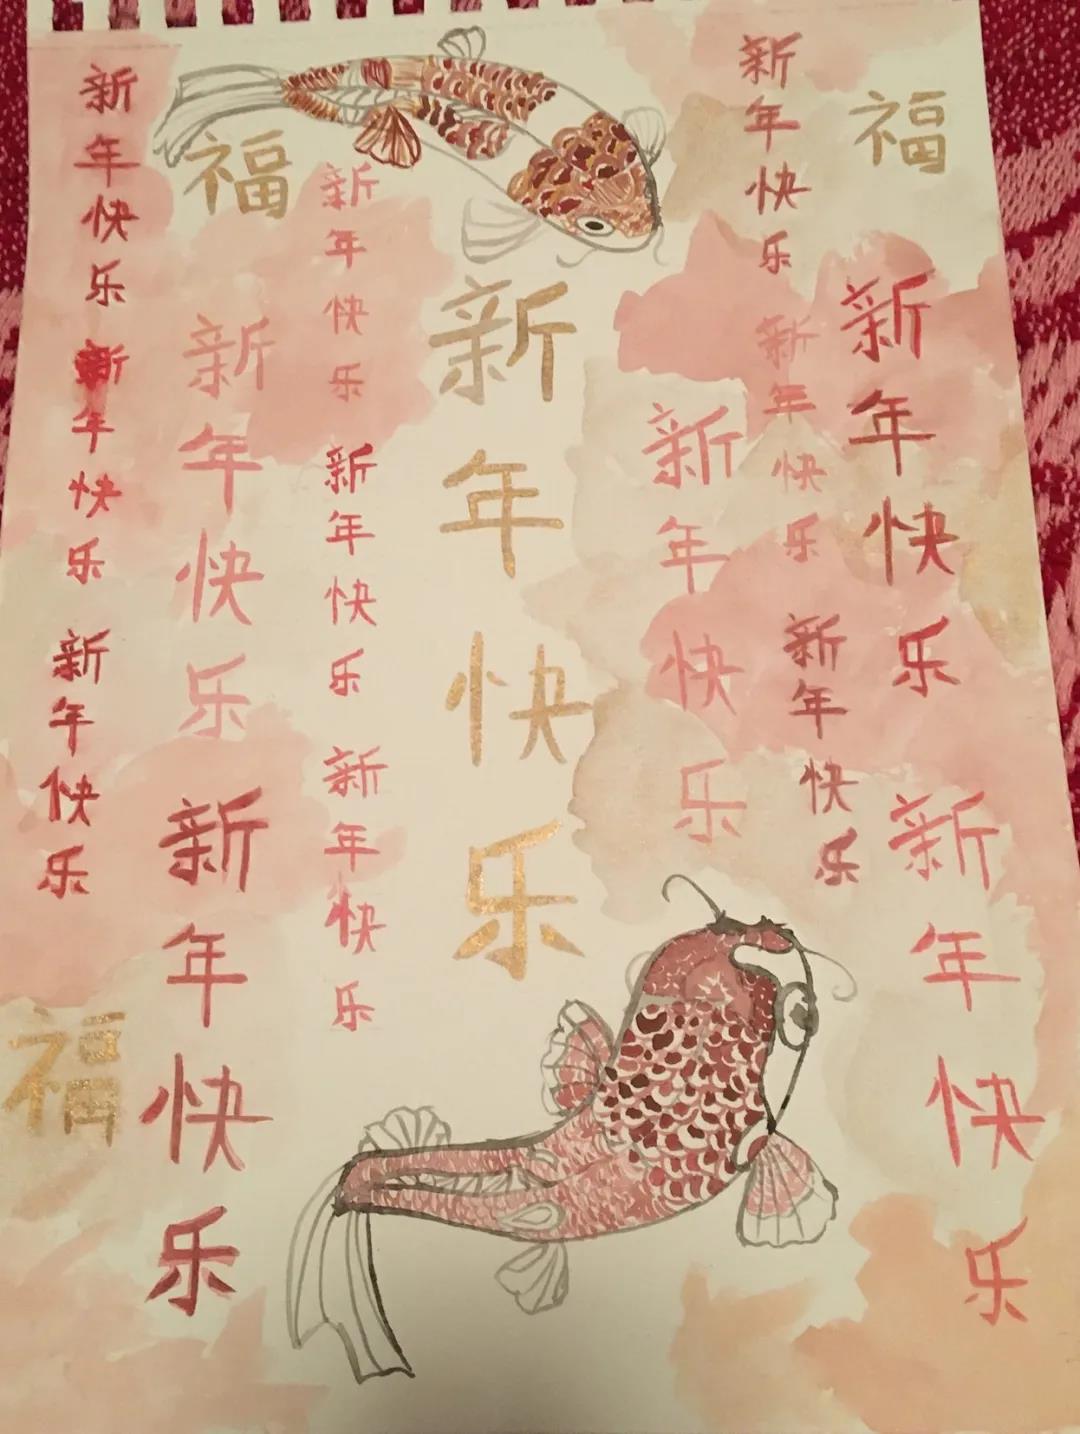 新年快乐
新年快乐
新年快乐
福
新年快乐
新年快乐
福
新年快乐
新年快乐
新年快乐
新年快乐
新年快乐
新年快乐
新年快乐
新年快乐
新年快乐
福
新年快乐
新年快乐